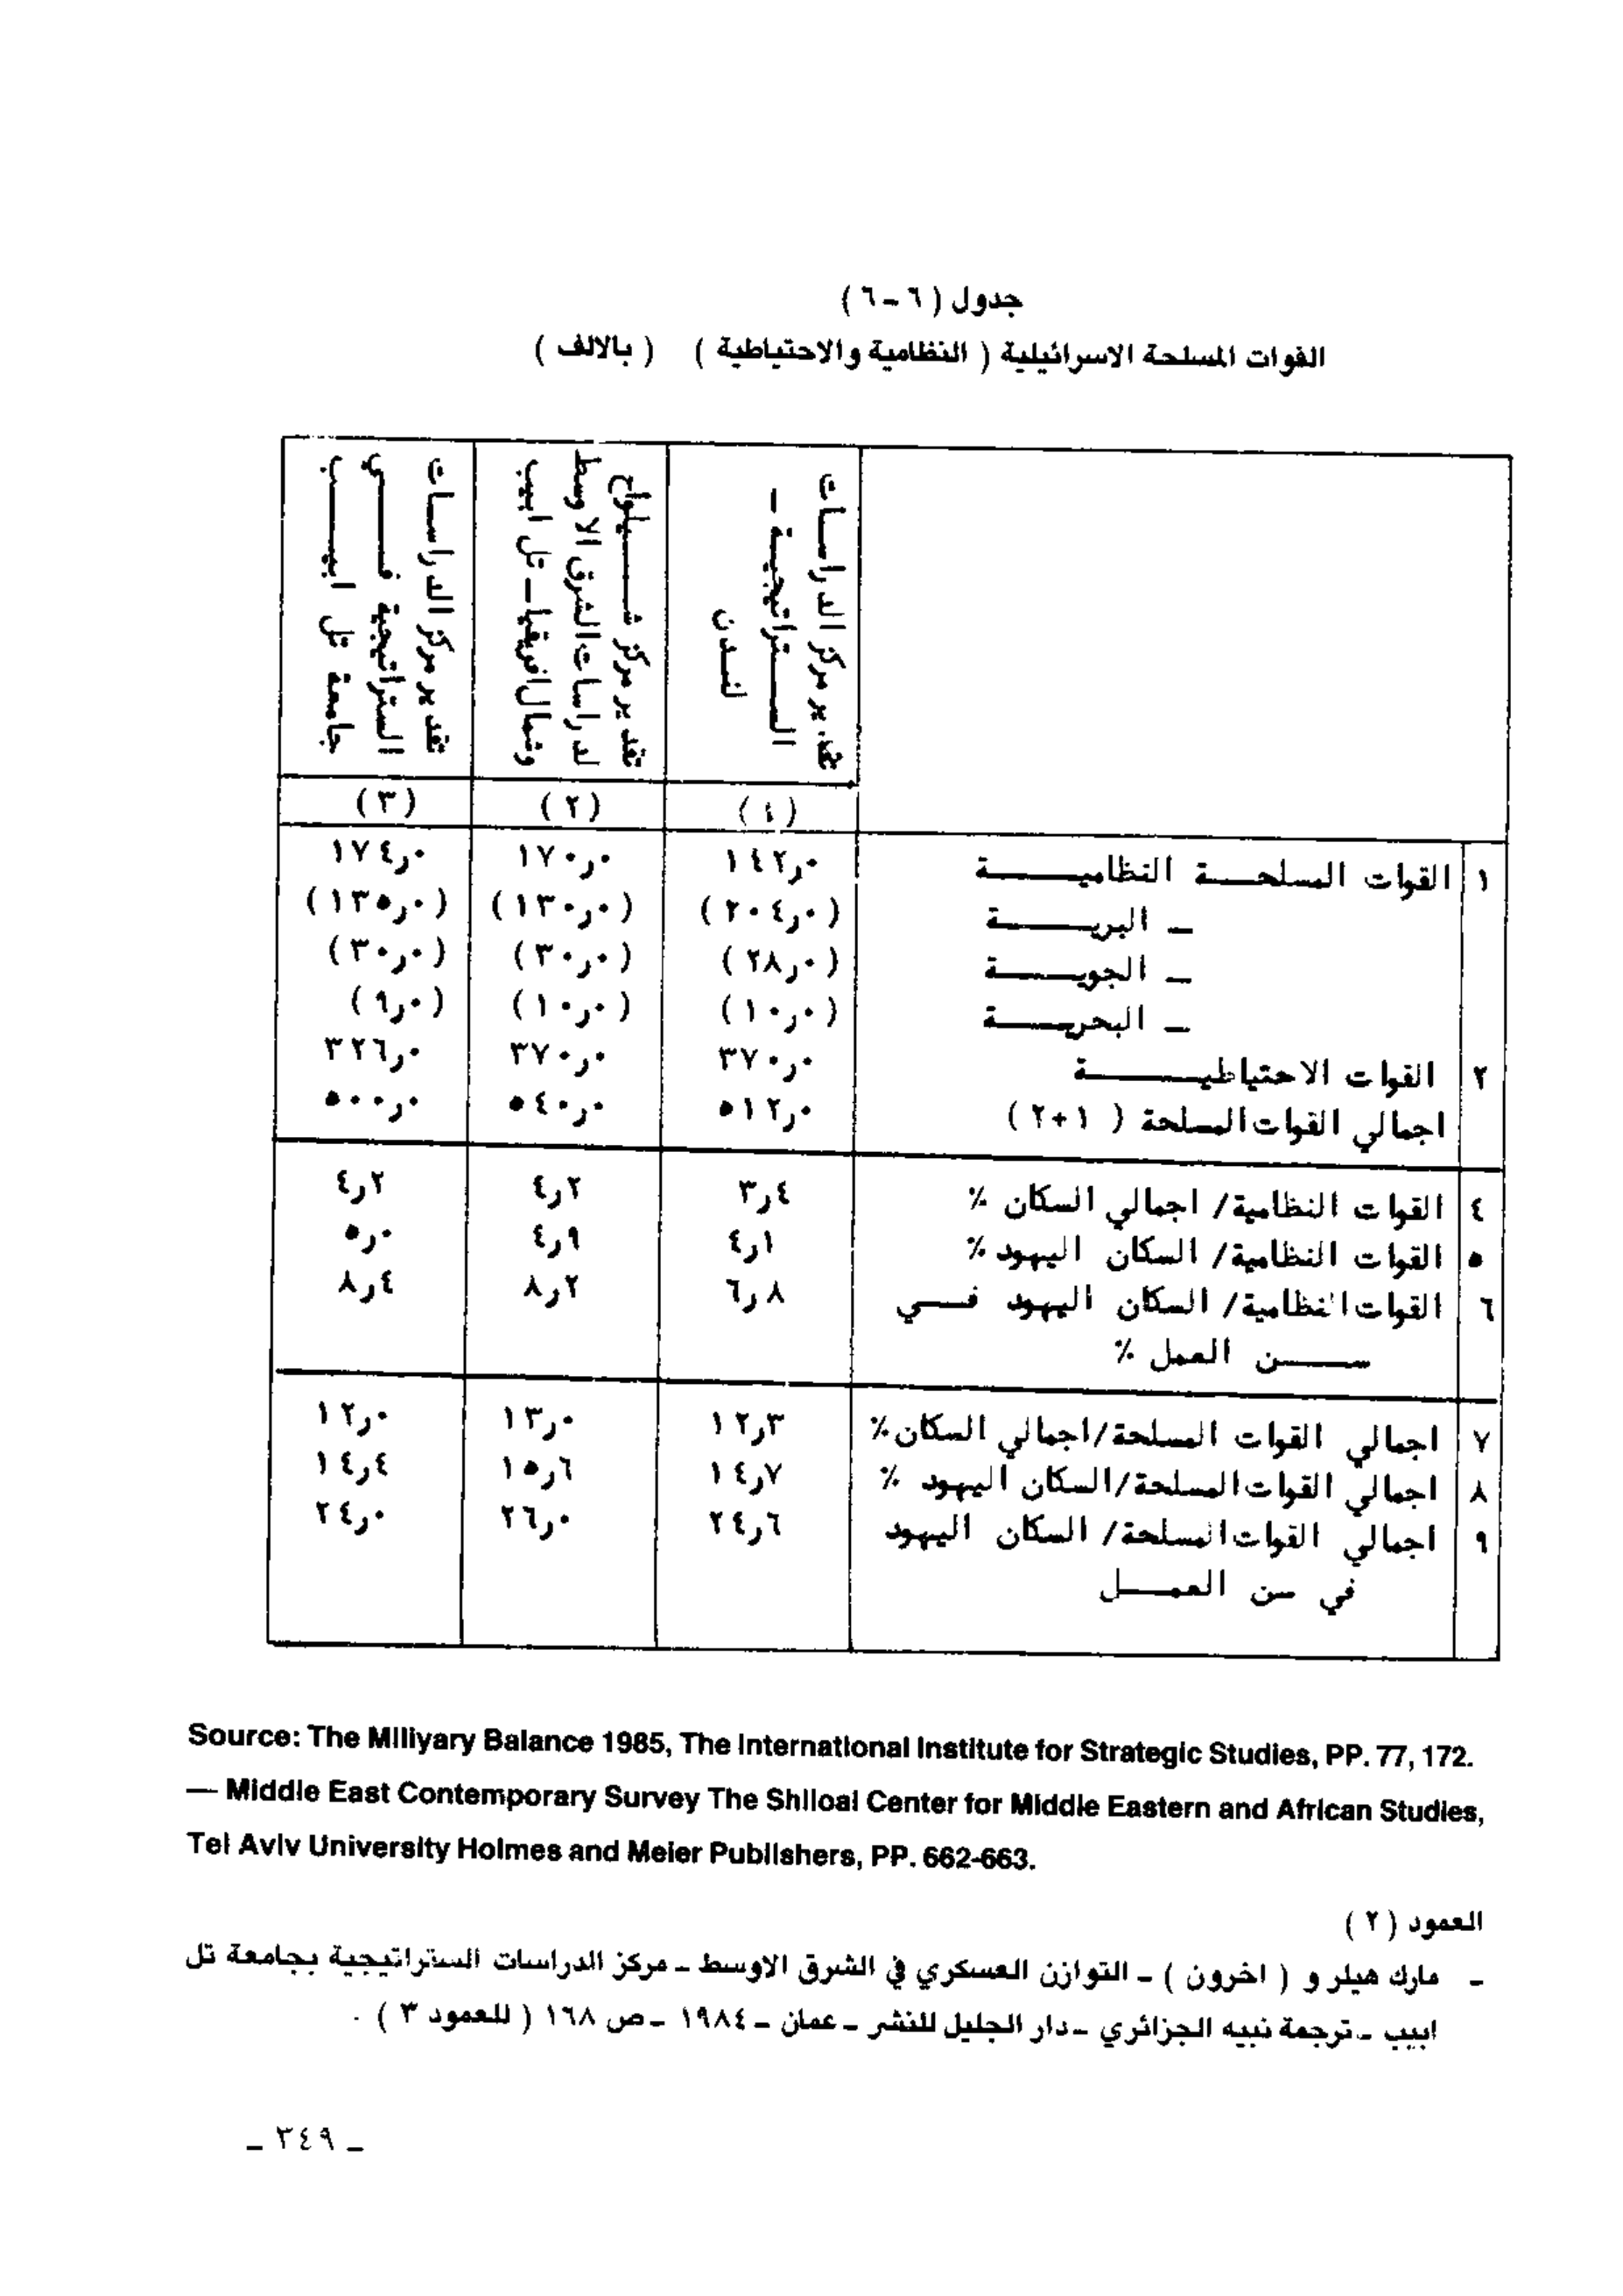 جدول ( ٦ - ٦ )
القوات المسلحة الاسرائيلية ( النظامية والاحتياطية ) ( بالالف )
تقدير مركز الدراسات
الستراتيجية -
لندن
تقدير مركز شيلواح
لدراسات الشرق الاوسط
وشمال افريقيا - تل ابيب
تقدير مركز الدراسات
الستراتيجية في
جامعة تل ابيب
( ٤ ) ( ٢ ) ( ٣ )
١ القوات المسلحة النظامية ١٤٢ر٠ ١٧٠ر٠ ١٧٤ر٠
- البرية ( ٢٠٤ر٠ ) ( ١٣٠ر٠ ) ( ١٣٥ر٠ )
- الجوية ( ٢٨ر٠ ) ( ٣٠ر٠ ) ( ٣٠ر٠ )
- البحرية ( ١٠ر٠ ) ( ١٠ر٠ ) ( ٩ر٠ )
٢ القوات الاحتياطية ٣٧٠ر٠ ٣٧٠ر٠ ٣٢٦ر٠
اجمالي القوات المسلحة ( ١ + ٢ ) ٥١٢ر٠ ٥٤٠ر٠ ٥٠٠ر٠
٤ القوات النظامية / اجمالي السكان ٪ ٣ر٤ ٤ر٢ ٤ر٢
٥ القوات النظامية / السكان اليهود ٪ ٤ر١ ٤ر٩ ٥ر٠
٦ القوات النظامية / السكان اليهود في ٦ر٨ ٨ر٢ ٨ر٤
سن العمل ٪
٧ اجمالي القوات المسلحة / اجمالي السكان ٪ ١٢ر٣ ١٣ر٠ ١٢ر٠
٨ اجمالي القوات المسلحة / السكان اليهود ٪ ١٤ر٧ ١٥ر٦ ١٤ر٤
٩ اجمالي القوات المسلحة / السكان اليهود ٢٤ر٦ ٢٦ر٠ ٢٤ر٠
في سن العمل
Source: The Miliyary Balance 1985, The International Institute for Strategic Studies, PP. 77, 172.
— Middle East Contemporary Survey The Shiloal Center for Middle Eastern and African Studies,
Tel Aviv University Holmes and Meier Publishers, PP. 662-663.
العمود ( ٢ )
- مارك هيلر و ( اخرون ) - التوازن العسكري في الشرق الاوسط - مركز الدراسات الستراتيجية بجامعة تل
ابيب - ترجمة نبيه الجزائري - دار الجليل للنشر - عمان - ١٩٨٤ - ص ١٦٨ ( للعمود ٣ ) .
- ٣٤٩ -